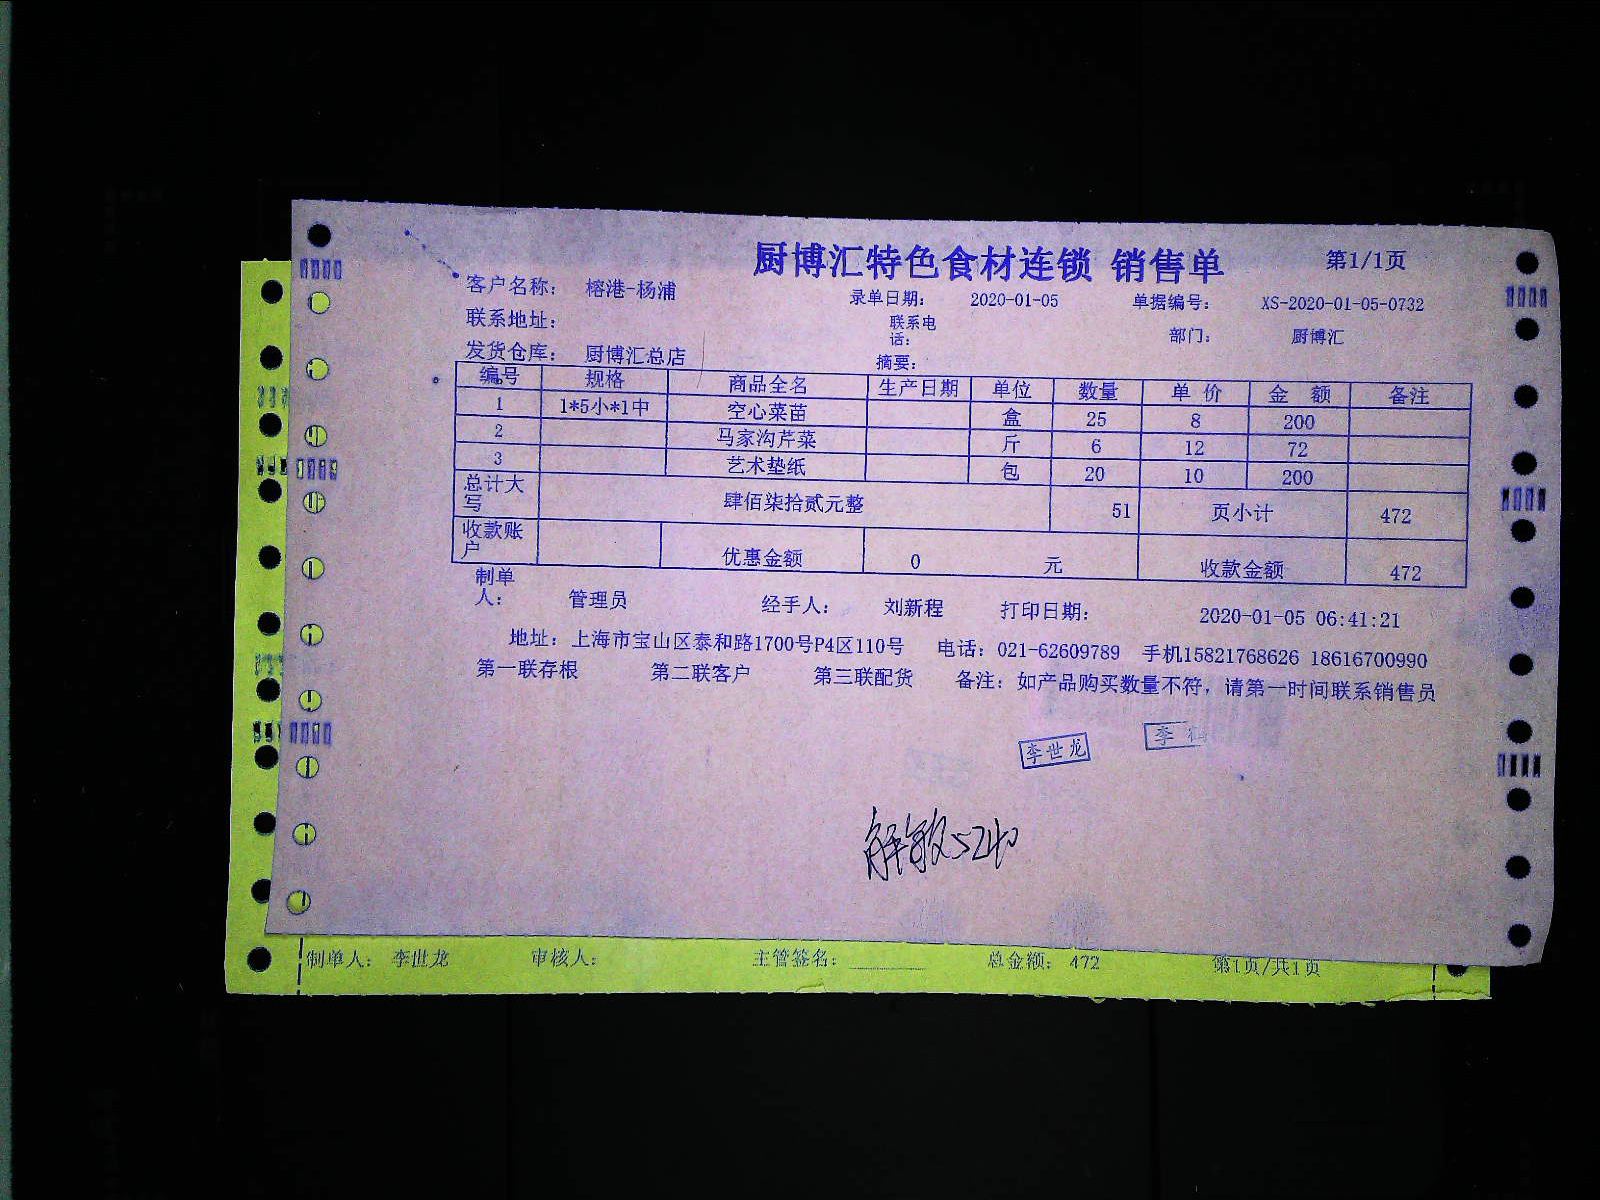 厨博汇特色食材连锁 销售单 第1/1页
客户名称： 榕港-杨浦 录单日期： 2020-01-05 单据编号： XS-2020-01-05-0732
联系地址： 联系电话： 部门： 厨博汇
发货仓库： 厨博汇总店 摘要：
编号 规格 商品全名 生产日期 单位 数量 单 价 金 额 备注
1 1*5小*1中 空心菜苗 盒 25 8 200
2 马家沟芹菜 斤 6 12 72
3 艺术垫纸 包 20 10 200
总计大写 肆佰柒拾贰元整 51 页小计 472
收款账户 优惠金额 0 元 收款金额 472
制单人： 管理员 经手人： 刘新程 打印日期： 2020-01-05 06:41:21
地址：上海市宝山区泰和路1700号P4区110号 电话：021-62609789 手机15821768626 18616700990
第一联存根 第二联客户 第三联配货 备注：如产品购买数量不符，请第一时间联系销售员
李世龙 李
制单人： 李世龙 审核人： 主管签名： 总金额： 472 第1页/共1页